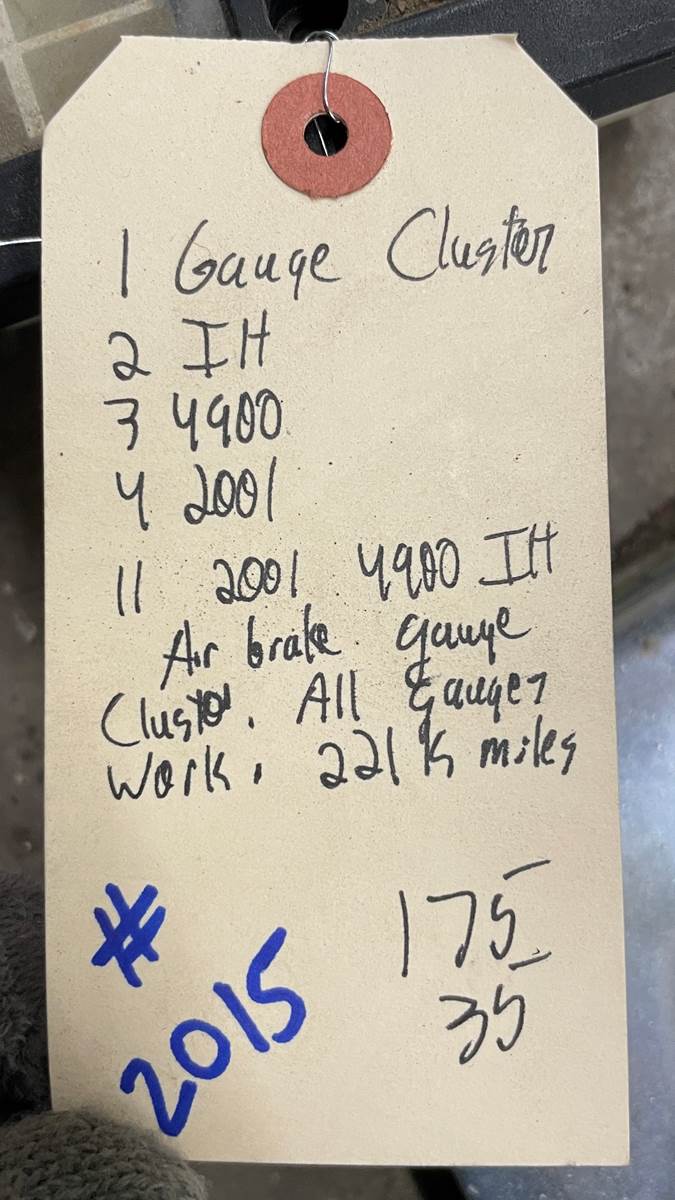 1 Gauge Cluster
2 IH
3 4900
4 2001
11 2001 4900 IH
Air brake gauge
Cluster. All Gauges
work. 221K miles
175
35
#
2015